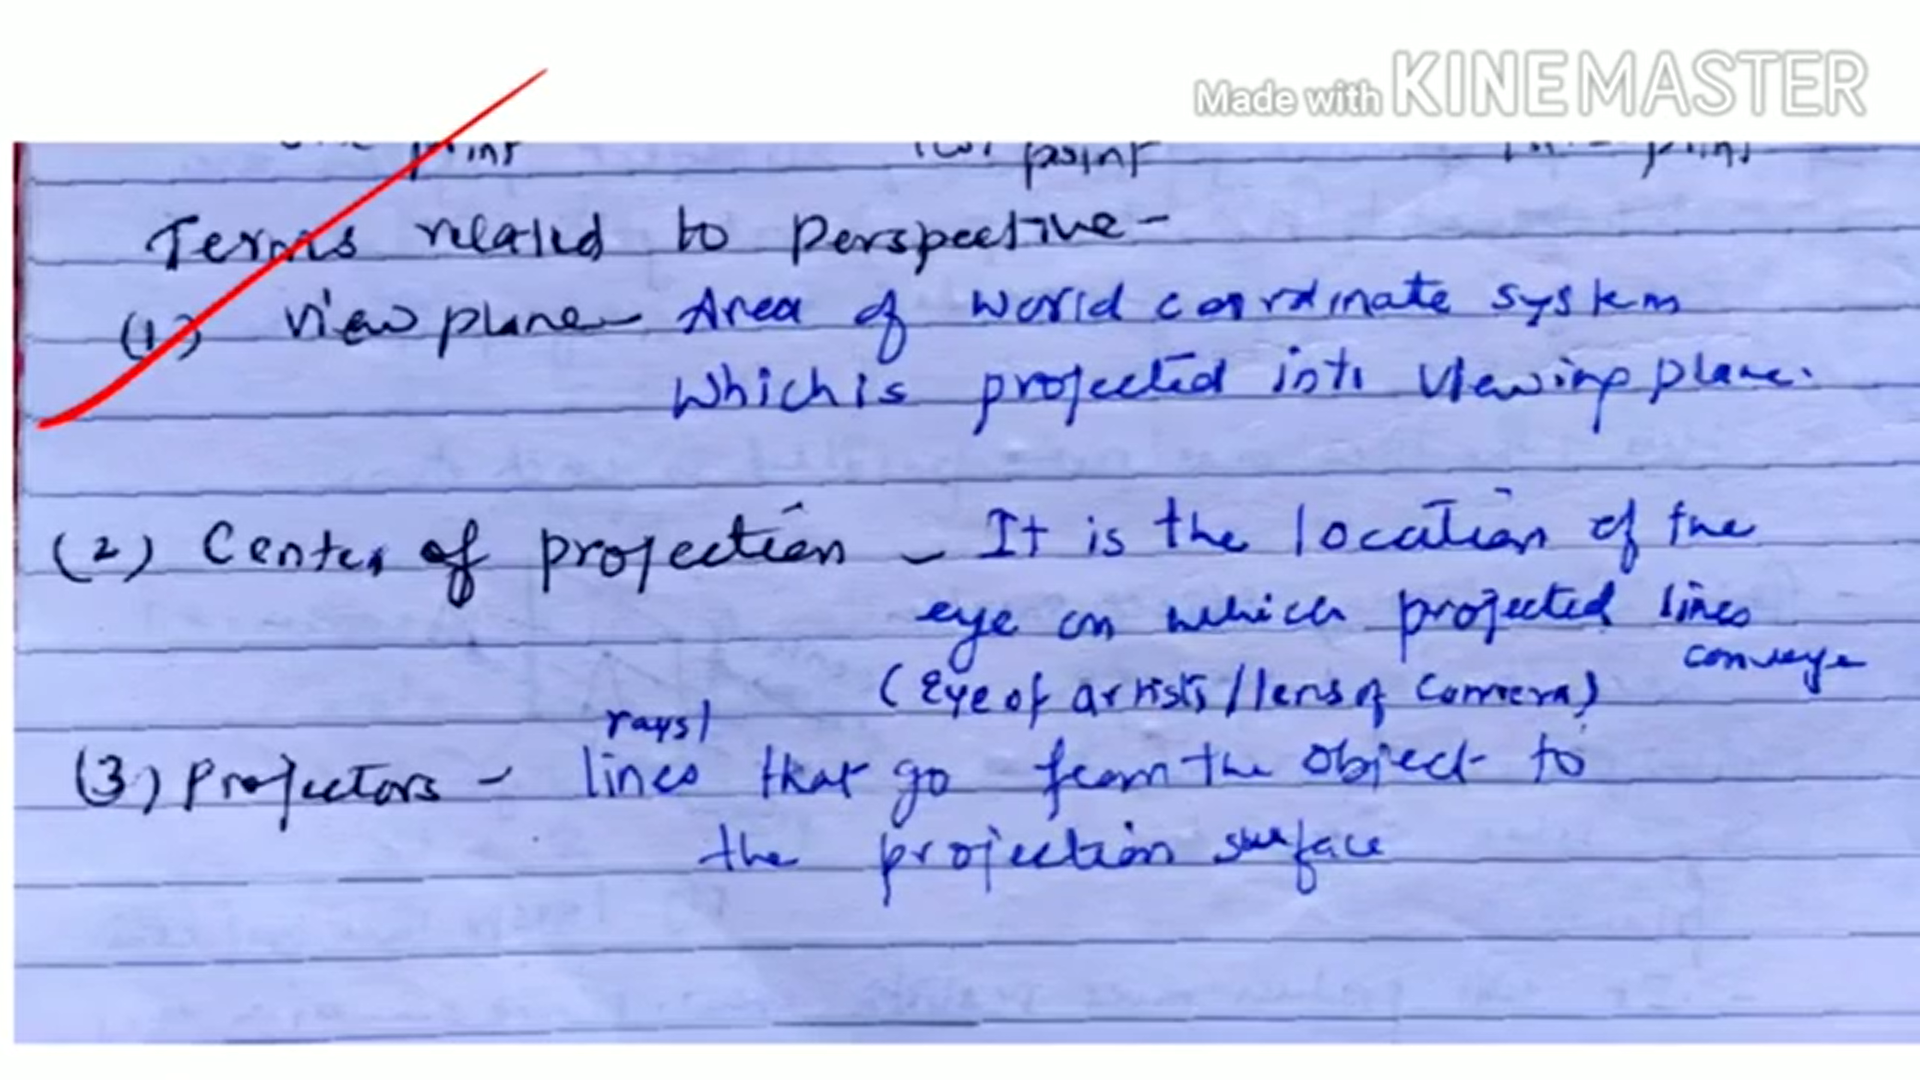 Made with KINEMASTER
point point
Terms related to Perspective -
(1) view plane - Area of world coordinate system
Which is projected into viewing plane.
(2) Center of projection - It is the location of the
eye on which projected lines
converge
(Eye of artists / lens of camera)
rays /
(3) Projectors - lines that go from the object to
the projection surface